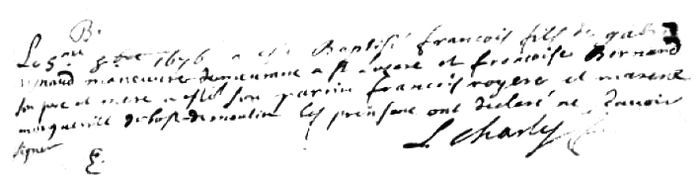 B.
Le 5me 8bre 1676 a esté Baptisé francois fils de gab
renaud manœuvre demeurant a st ligere et francoise Bernard
son pere et mere a esté son parrin francois royere et marene
margueritte les presans ont declaré ne scavoir
signer
L. Charly
E.